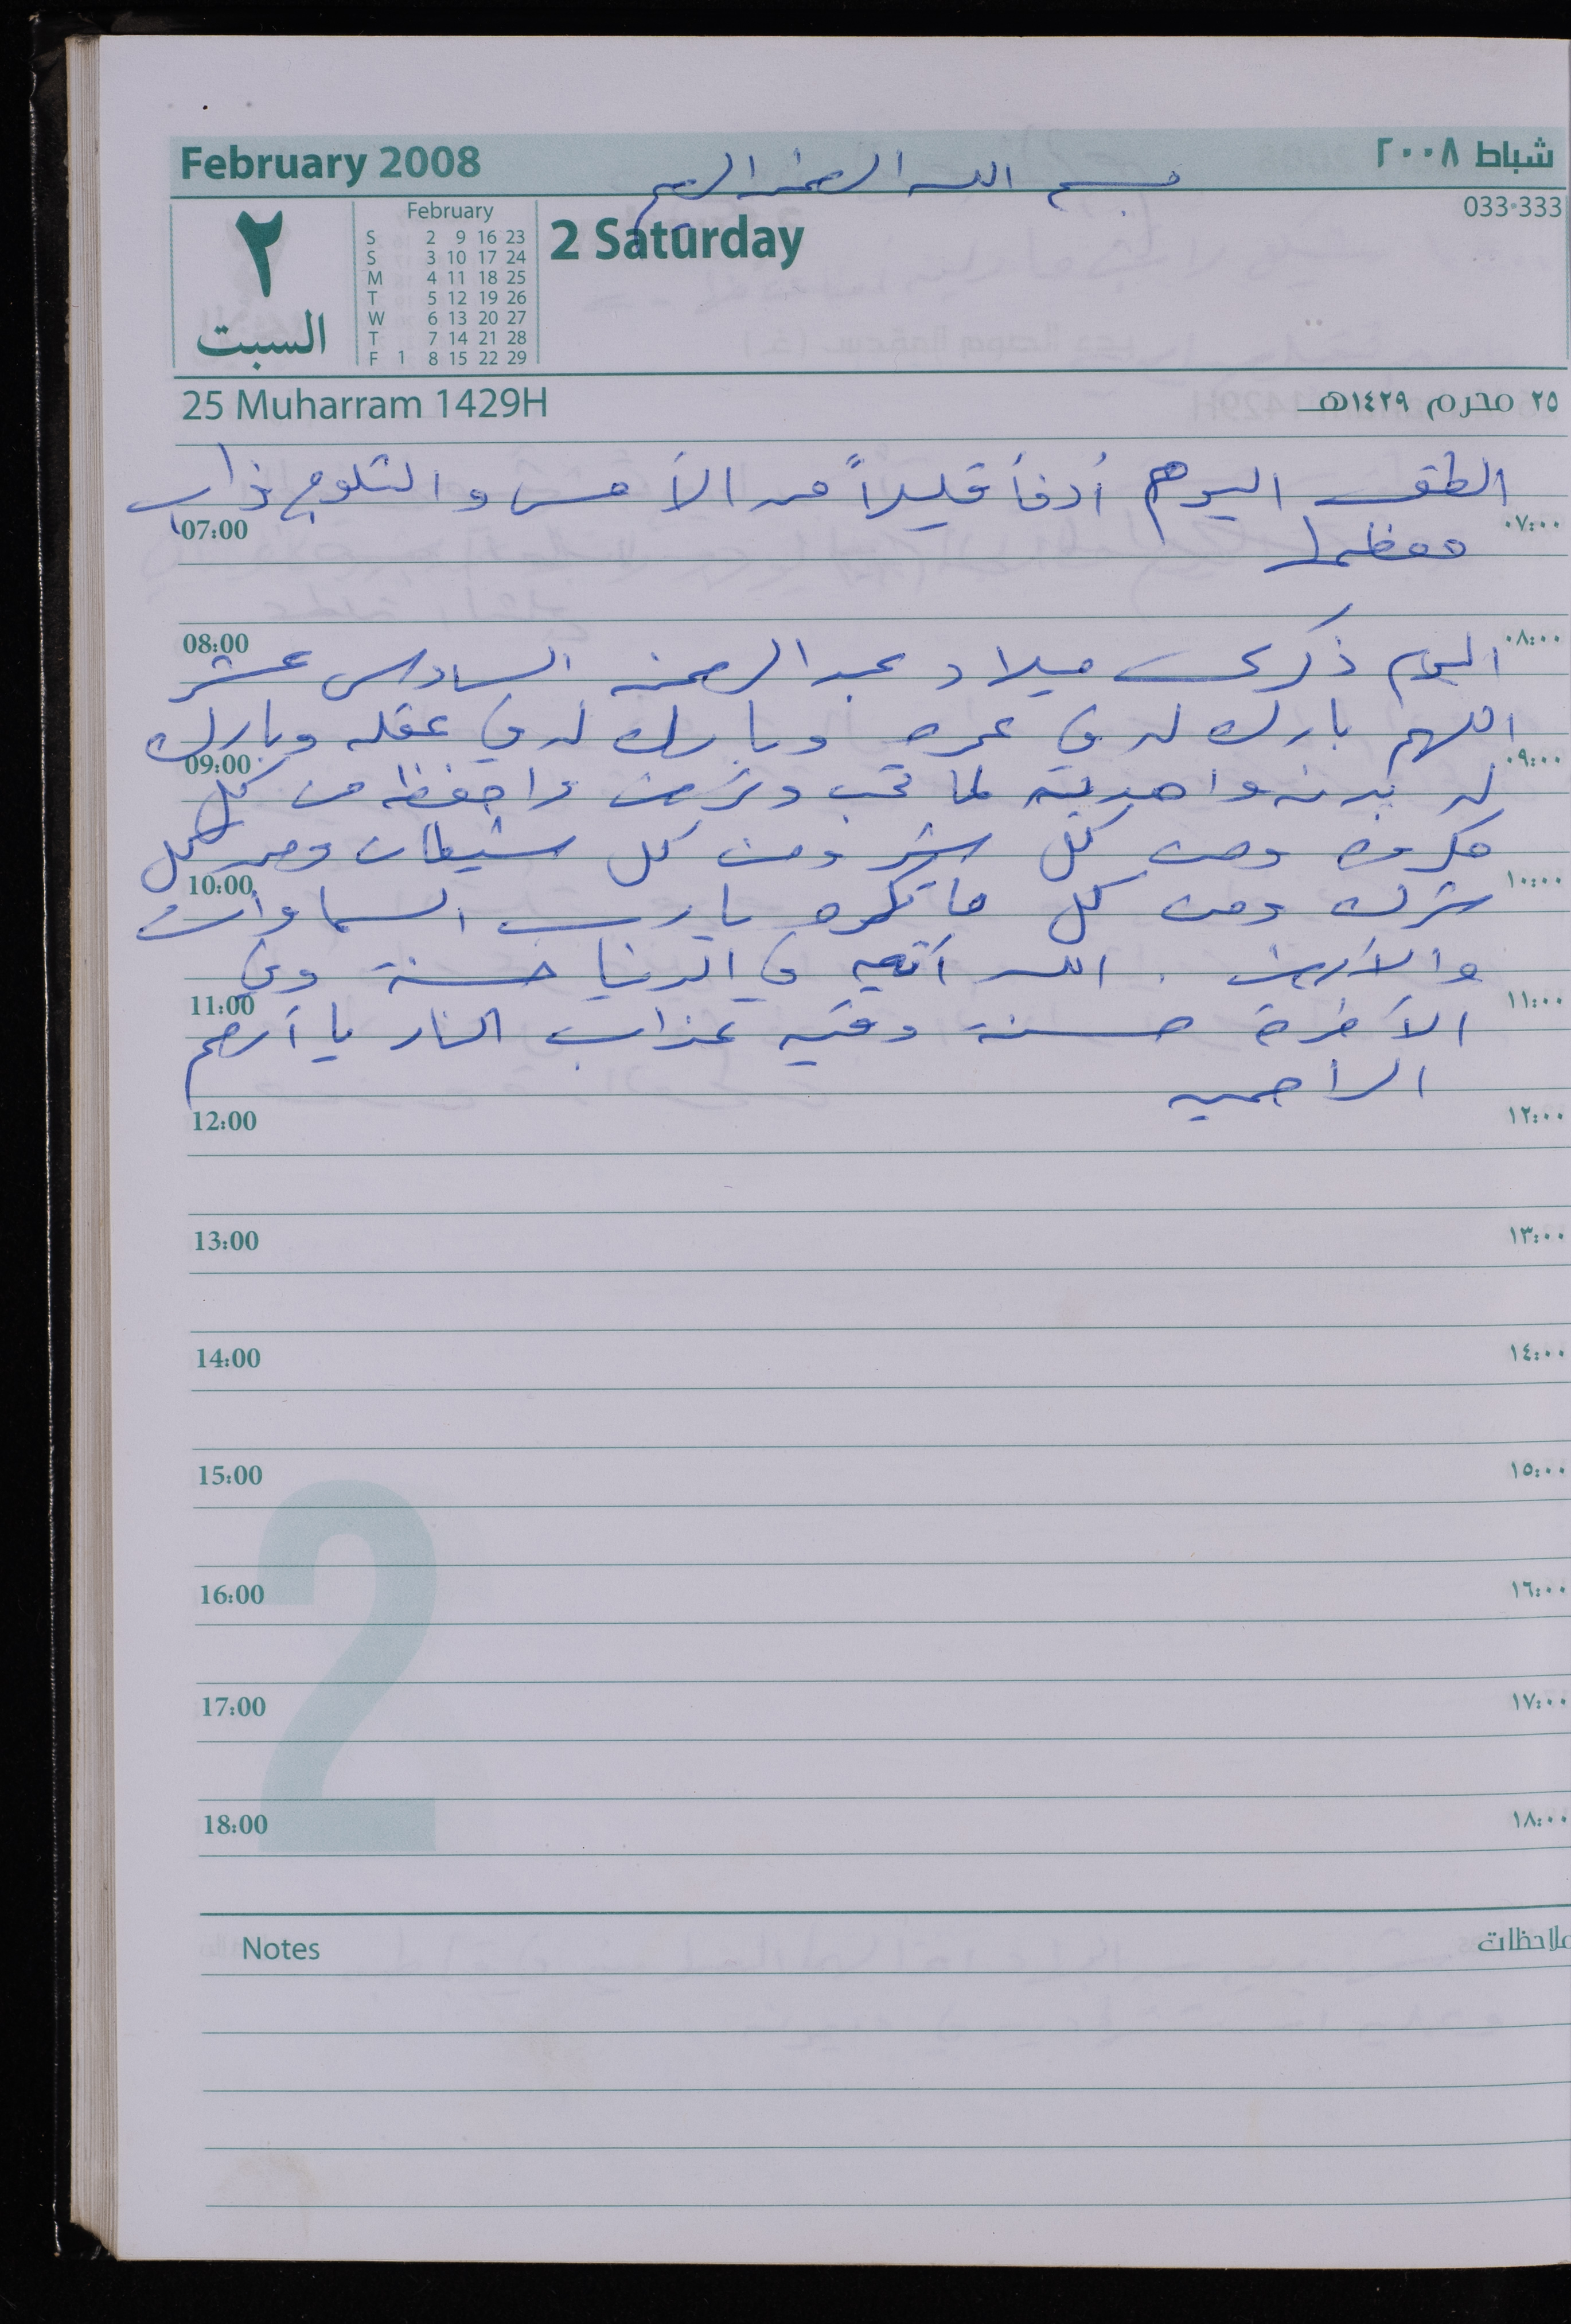 February 2008
شباط ٢٠٠٨
بسم الله الرحمن الرحيم
٢
السبت
February
S 2 9 16 23
S 3 10 17 24
M 4 11 18 25
T 5 12 19 26
W 6 13 20 27
T 7 14 21 28
F 1 8 15 22 29
2 Saturday
033·333
25 Muharram 1429H
٢٥ محرم ١٤٢٩هـ
الطقس اليوم أدفأ قليلاً من الأمس والثلوج ذاب
07:00 ٠٧:٠٠
معظمها
08:00 ٠٨:٠٠
اليوم ذكرى ميلاد عبد الرحمن السادس عشر
اللهم بارك له في عمره وبارك له في عقله وبارك
09:00 ٠٩:٠٠
له بدنه واهديه لما تحب وترضى واحفظه من كل
مكروه ومن كل شر ومن كل شيطان ومن كل
10:00 ١٠:٠٠
شرك ومن كل ما تكره يا رب السماوات
والأرض . الله آتيه في الدنيا حسنة وفي
11:00 ١١:٠٠
الآخرة حسنة وقيه عذاب النار يا أرحم
الراحمين
12:00 ١٢:٠٠
13:00 ١٣:٠٠
14:00 ١٤:٠٠
15:00 ١٥:٠٠
16:00 ١٦:٠٠
17:00 ١٧:٠٠
18:00 ١٨:٠٠
2
Notes
ملاحظات